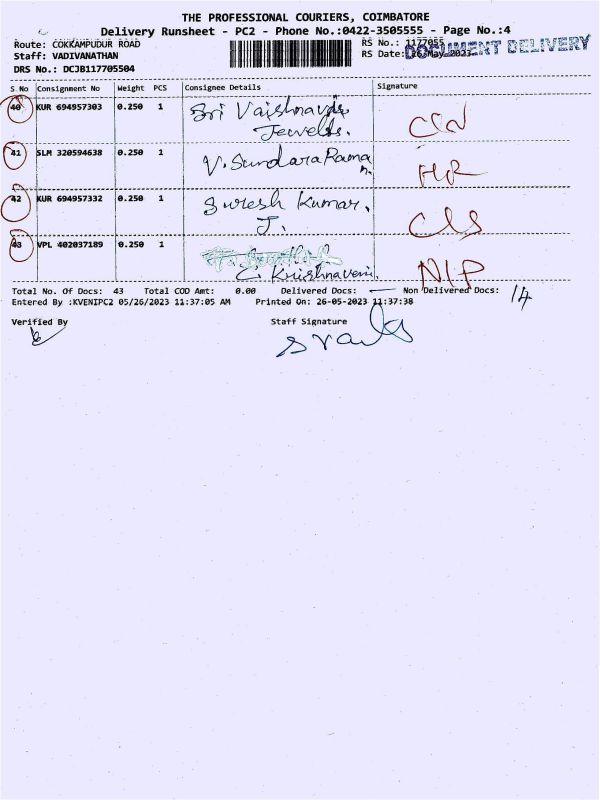 THE PROFESSIONAL COURIERS, COIMBATORE
Delivery Runsheet - PC2 - Phone No.:0422-3505555 - Page No.:4
Route: COKKAMPUDUR ROAD
RS No.: 1177055
DOCUMENT DELIVERY
Staff: VADIVANATHAN
RS Date: 26-May-2023
DRS No.: DCJB117705504
S.No Consignment No Weight PCS Consignee Details Signature
40 KUR 694957303 0.250 1 Sri Vaishnavi
Jewells.
41 SLM 320594638 0.250 1 V. Sundara Rama
n.
HR
42 KUR 694957332 0.250 1 Suresh Kumar.
J.
43 VPL 402037189 0.250 1
C. Krishnaveni.
NIP
Total No. Of Docs: 43 Total COD Amt: 0.00 Delivered Docs: Non Delivered Docs: 14
Entered By :KVENIPC2 05/26/2023 11:37:05 AM Printed On: 26-05-2023 11:37:38
Verified By Staff Signature